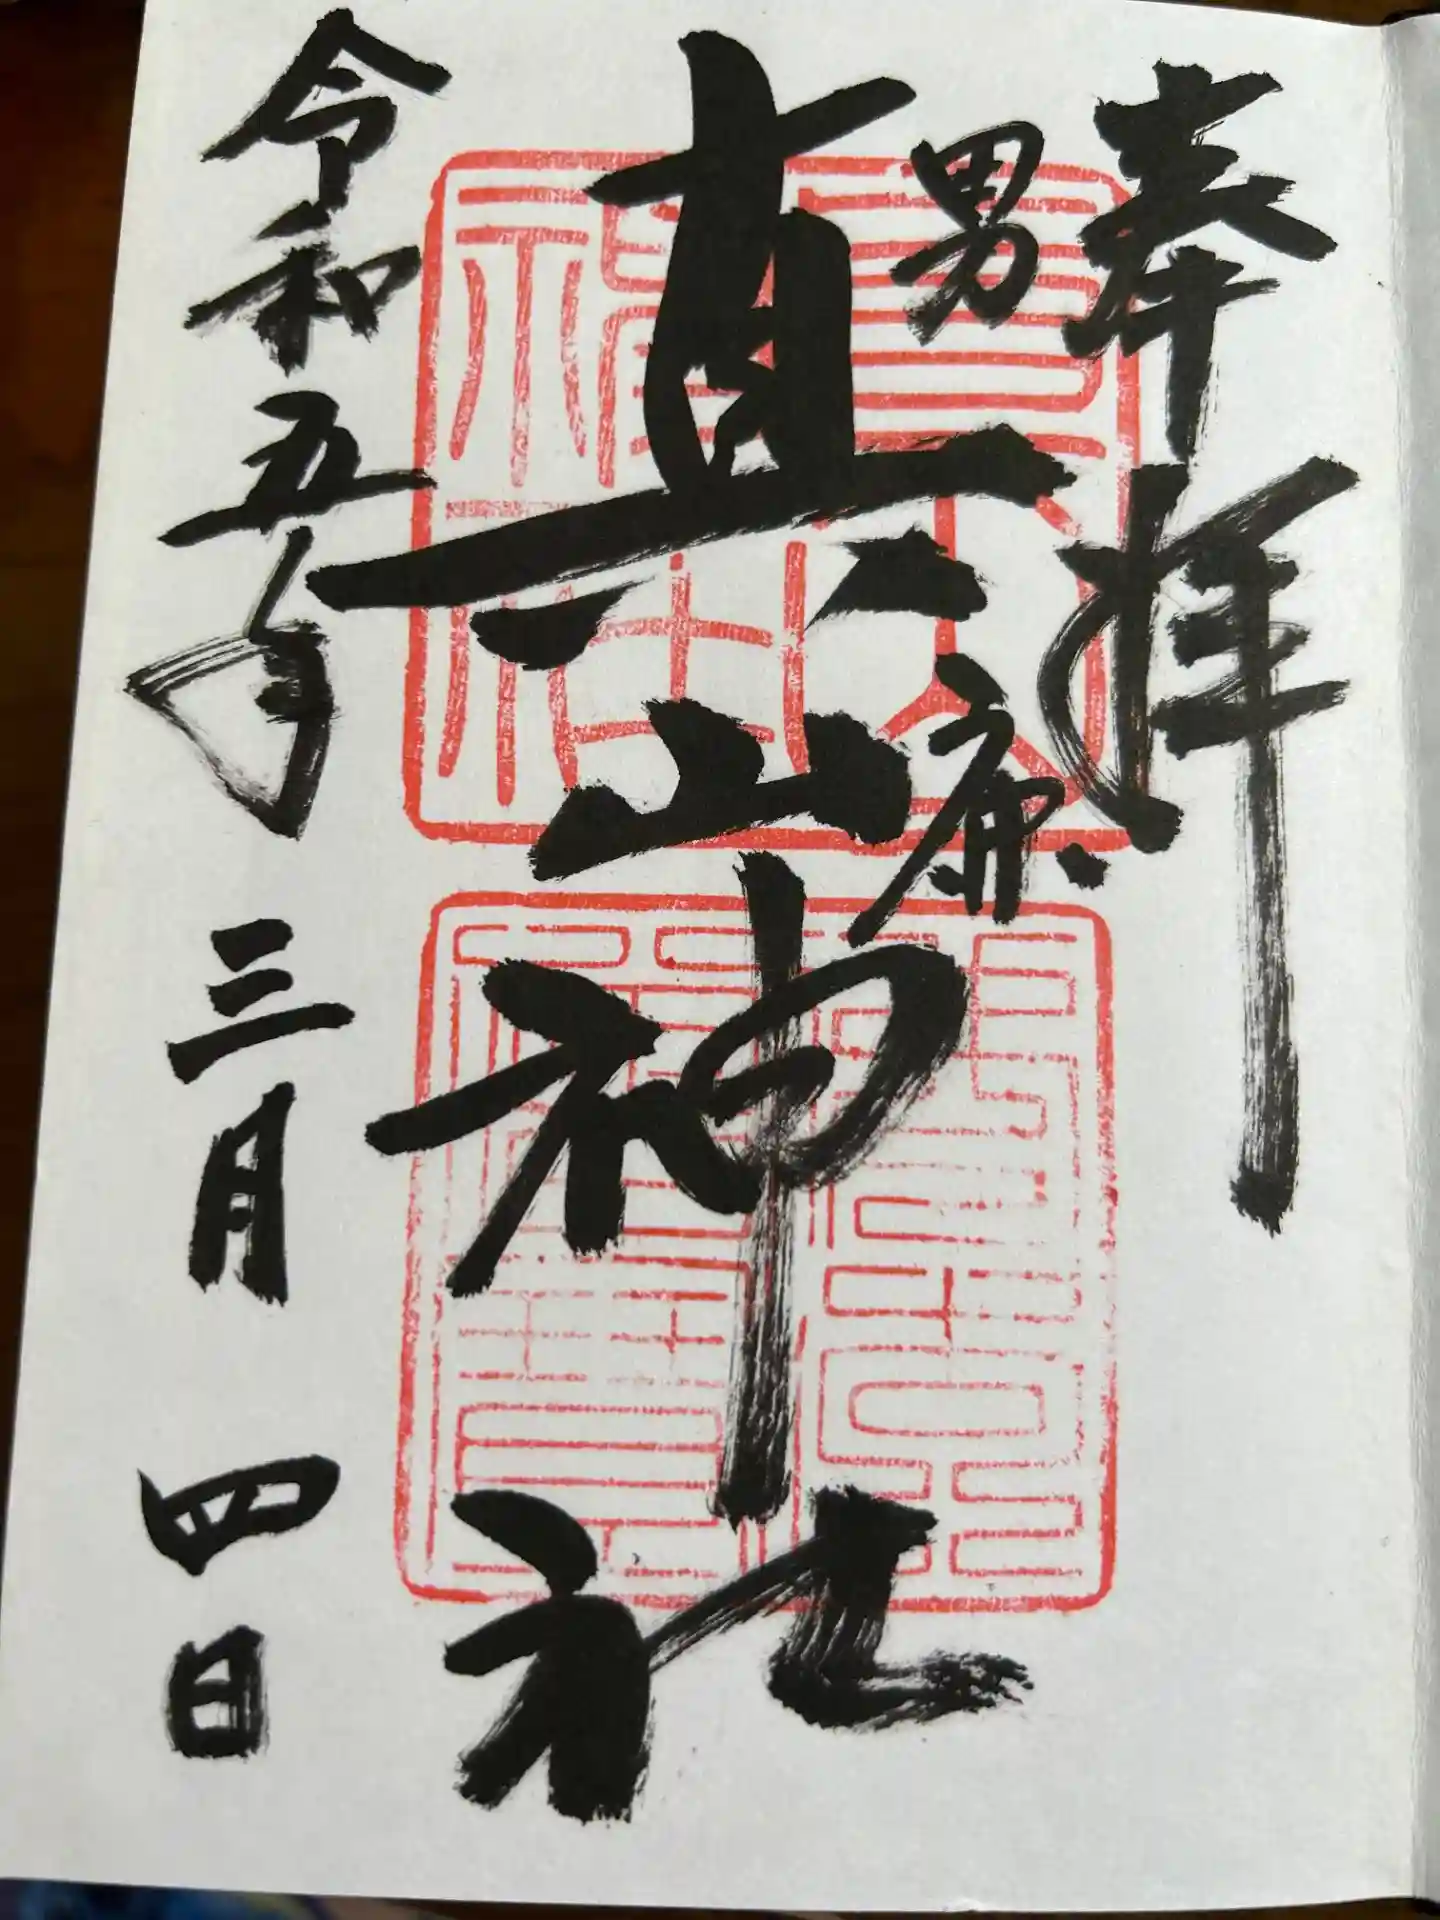 奉拝
男鹿
真山神社
令和五年三月四日